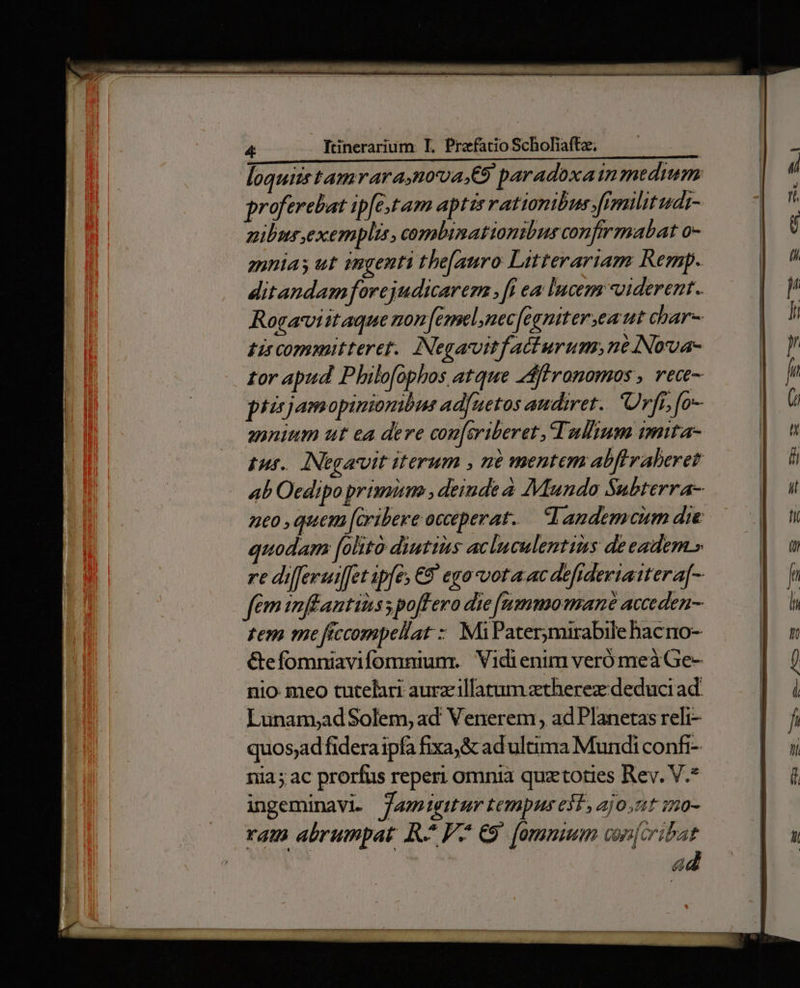 4 Itinerarium I. Præfatio Scholiaſtæ.
loquiis tam rara, nova, & paradoxa in medium
proferebat ipſe, tam aptis rationibus, ſimilitudi-
nibus, exemplis, combinationibus confirmabat o-
mnia; ut ingenti theſauro Litterariam Remp.
ditandam fore judicarem, ſi ea lucem viderent.
Rogavi itaque non ſemel, nec ſegniter, ea ut char-
tis committeret. Negavit facturum, nè Nova-
tor apud Philoſophos atque Aſtronomos, rece-
ptis jam opinionibus adſuetos audiret. Urſi, ſo-
mnium ut ea de re conſcriberet, Tullium imita-
tus. Negavit iterum, nè mentem abſtraheret
ab Oedipo primùm, deinde à Mundo Subterra-
neo, quem ſcribere occeperat. Tandem cùm die
quodam ſolitò diutiùs ac luculentiùs de eadem
re diſſeruiſſet ipſe, & ego vota ac deſideria iteraſ-
ſem inſtantiùs; poſtero die ſummo manè acceden-
tem me ſic compellat: Mi Pater, mirabile hac no-
cte ſomniavi ſomnium. Vidi enim veró meà Ge-
nio meo tutelari auræ illatum æthereæ deduci ad
Lunam, ad Solem, ad Venerem, ad Planetas reli-
quos, ad ſidera ipſa fixa, & ad ultima Mundi confi-
nia; ac prorſus reperi omnia quæ toties Rev. V.ᵃ
ingeminavi. Jam igitur tempus eſt, ajo, ut mo-
ram abrumpat R.ᵃ V.ᵃ & ſomnium conſcribat
ad